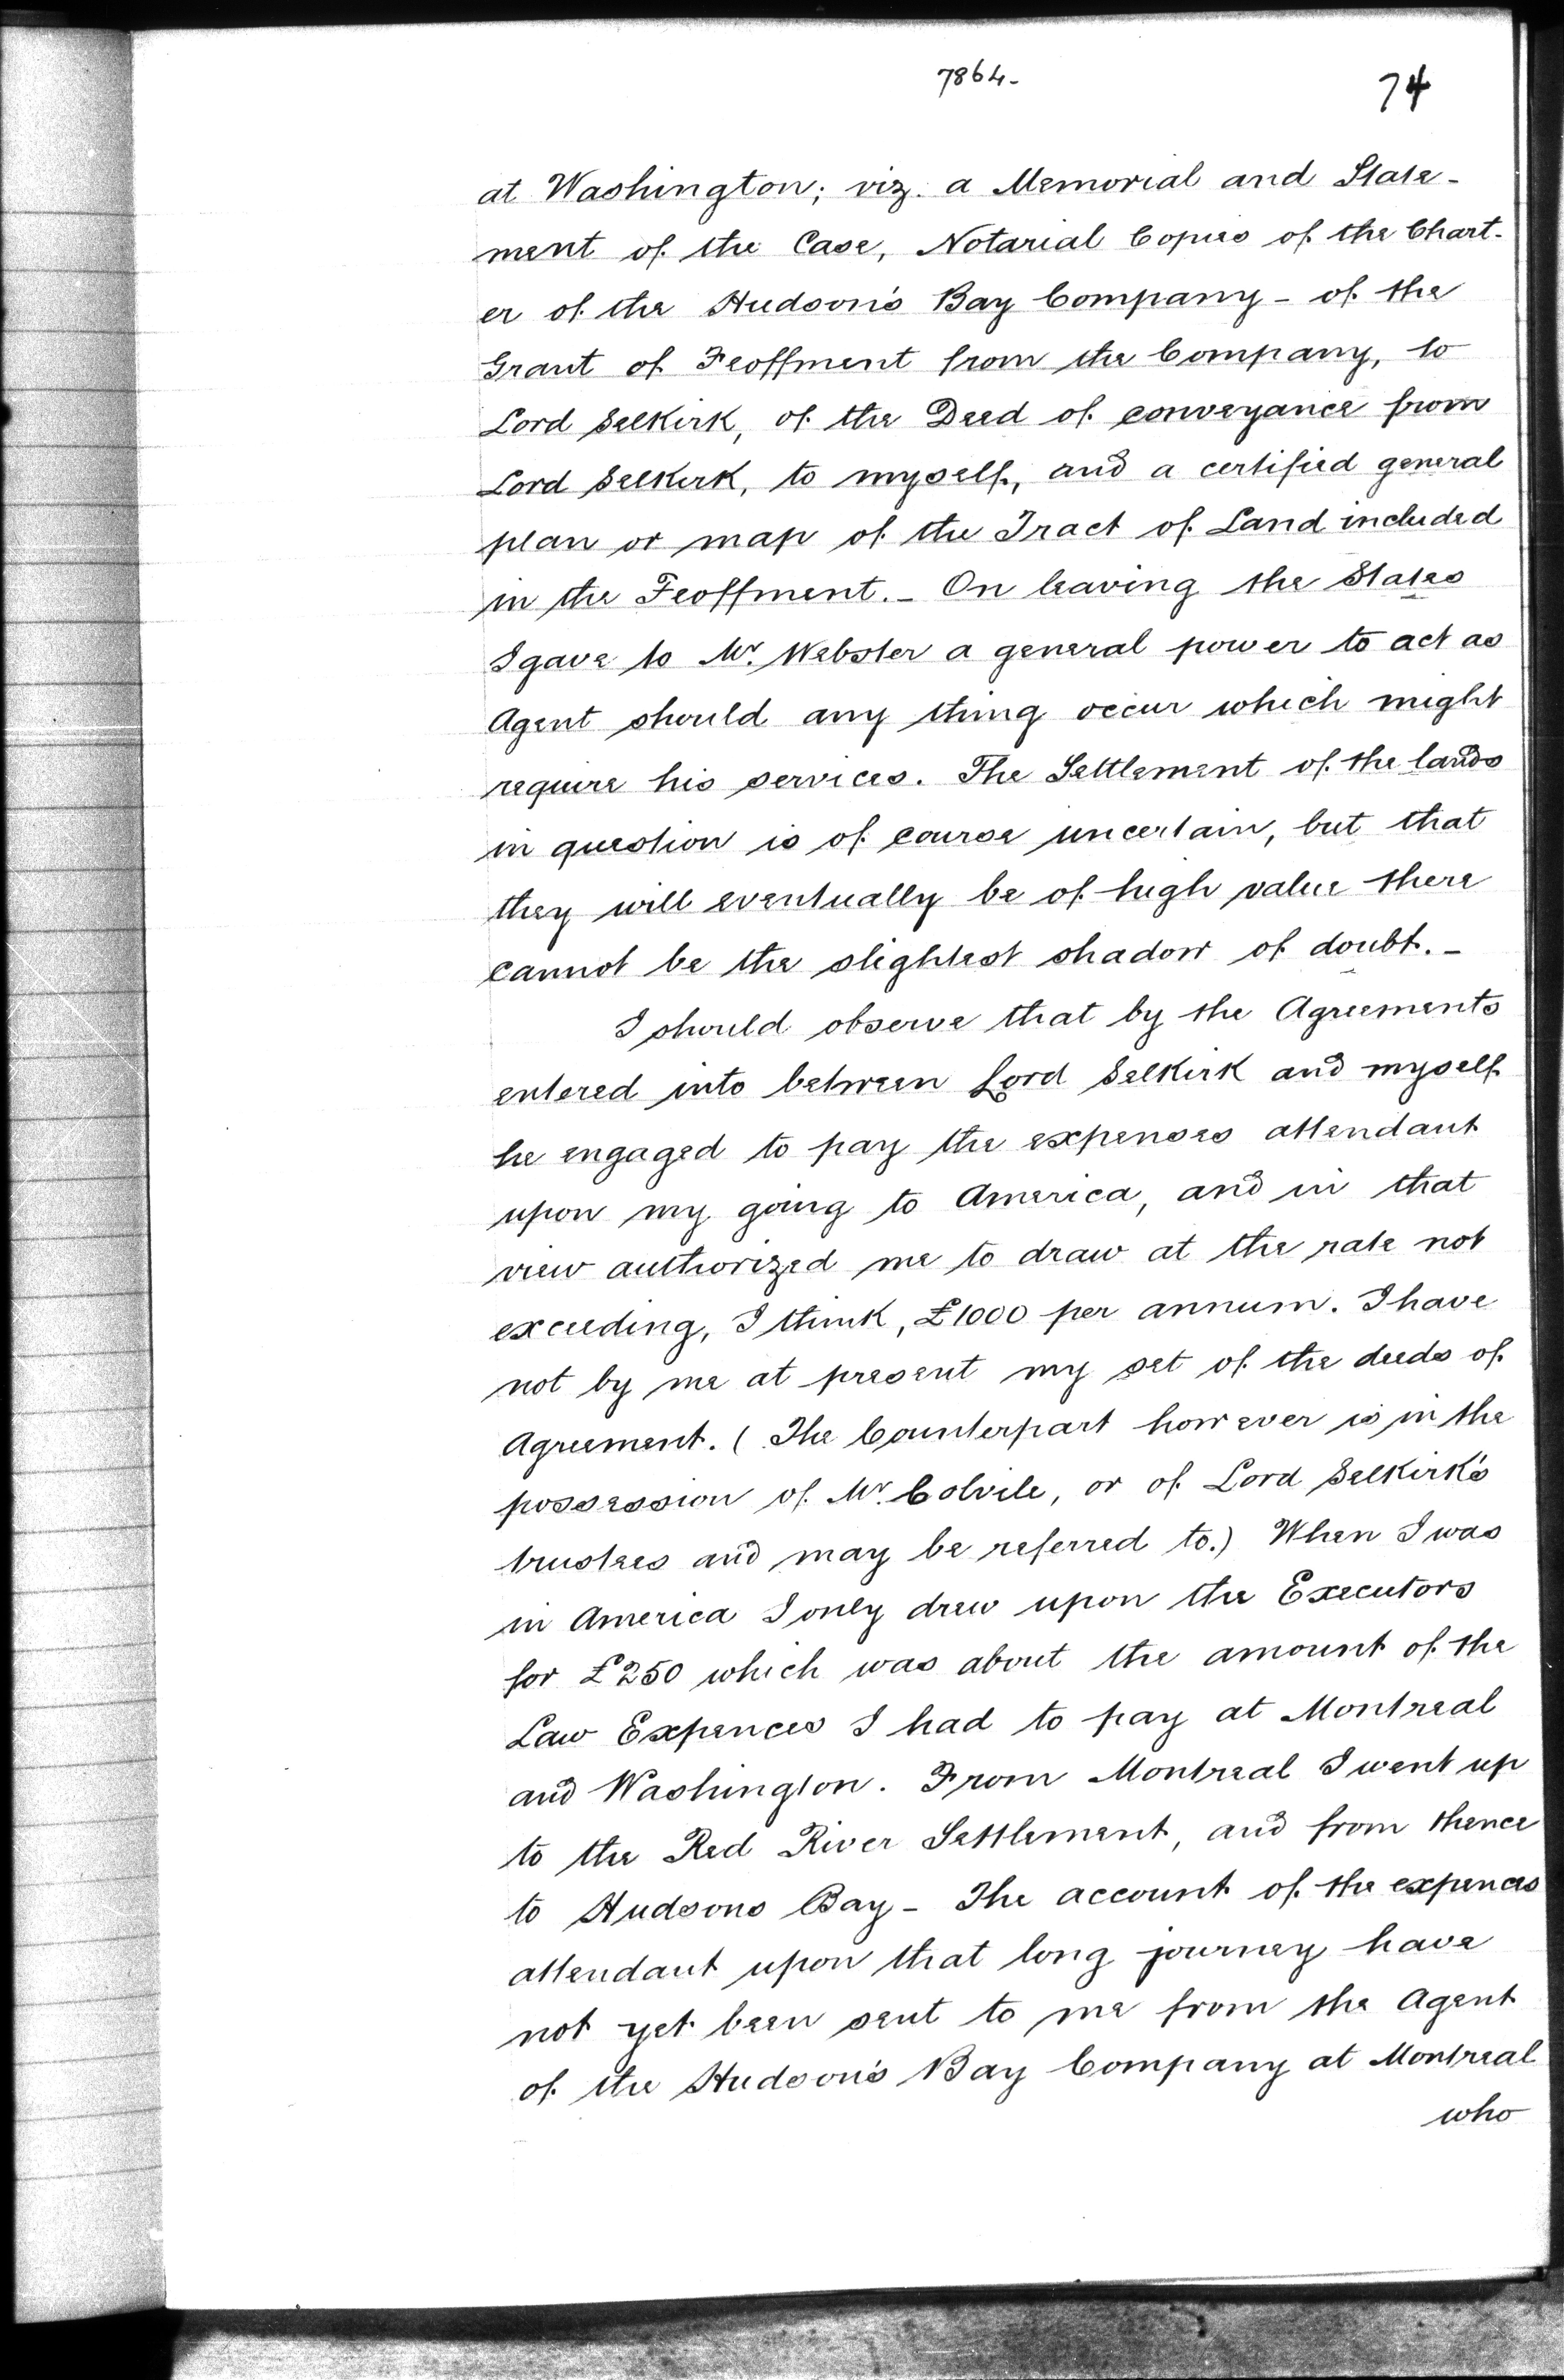 7864-
74
at Washington; viz. a Memorial and State-
ment of the Case, Notarial Copies of the Chart-
er of the Hudson's Bay Company - of the
Grant of Feoffment from the Company, to
Lord Selkirk, of the Deed of conveyance from
Lord Selkirk, to myself, and a certified general
plan or map of the Tract of Land included
in the Feoffment. - On leaving the States
I gave to Mr. Webster a general power to act as
Agent should any thing occur which might
require his services. The Settlement of the lands
in question is of course uncertain, but that
they will eventually be of high value there
cannot be the slightest shadow of doubt. -
I should observe that by the Agreements
entered into between Lord Selkirk and myself
he engaged to pay the expenses attendant
upon my going to America, and in that
view authorized me to draw at the rate not
exceeding, I think, £1000 per annum. I have
not by me at present my set of the deeds of
Agreement. (The Counterpart however is in the
possession of Mr. Colvile, or of Lord Selkirk's
trustees and may be referred to.) When I was
in America I only drew upon the Executors
for £250 which was about the amount of the
Law Expences I had to pay at Montreal
and Washington. From Montreal I went up
to the Red River Settlement, and from thence
to Hudsons Bay - The account of the expences
attendant upon that long journey have
not yet been sent to me from the Agent
of the Hudson's Bay Company at Montreal
who